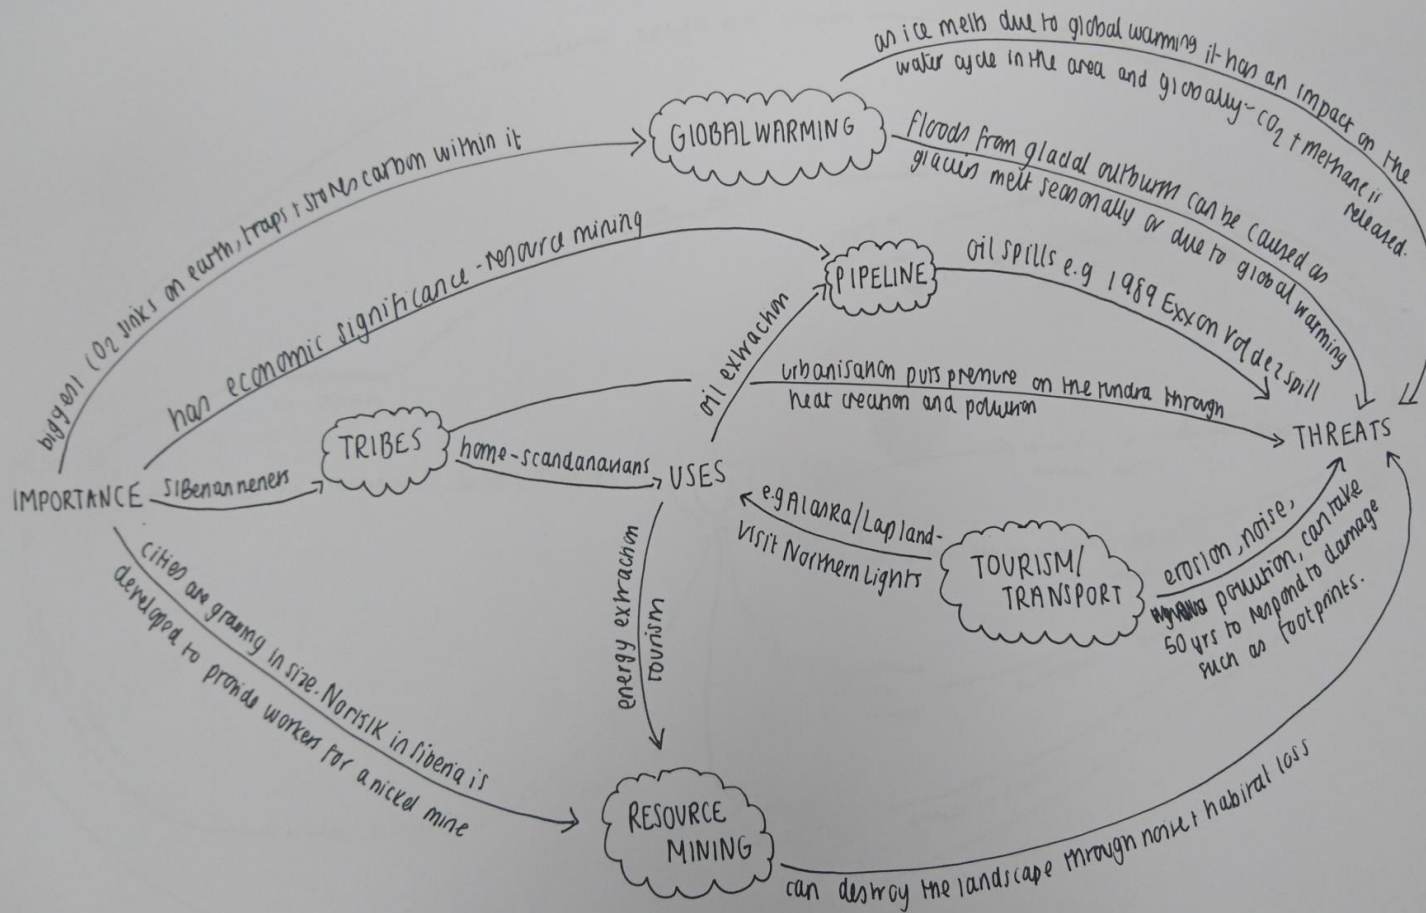 as ice melts due to global warming it has an impact on the
water cycle in the area and globally - CO2 + methane is
released.
GLOBAL WARMING
floods from glacial outburst can be caused as
glaciers melt seasonally or due to global warming
biggest CO2 sinks on earth, traps + stores carbon within it
has economic significance - resource mining
PIPELINE
oil spills e.g 1989 Exxon Valdez spill
oil extraction
urbanisation puts pressure on the tundra through
heat creation and pollution
THREATS
TRIBES
home - scandanavians
USES
IMPORTANCE
siberian neners
e.g Alaska/Lapland -
visit Northern Lights
TOURISM/
TRANSPORT
erosion, noise,
pollution, can take
50 yrs to respond to damage
such as footprints.
energy extraction
tourism
cities are growing in size. Norislk in Siberia is
developed to provide workers for a nickel mine
RESOURCE
MINING
can destroy the landscape through noise + habitat loss